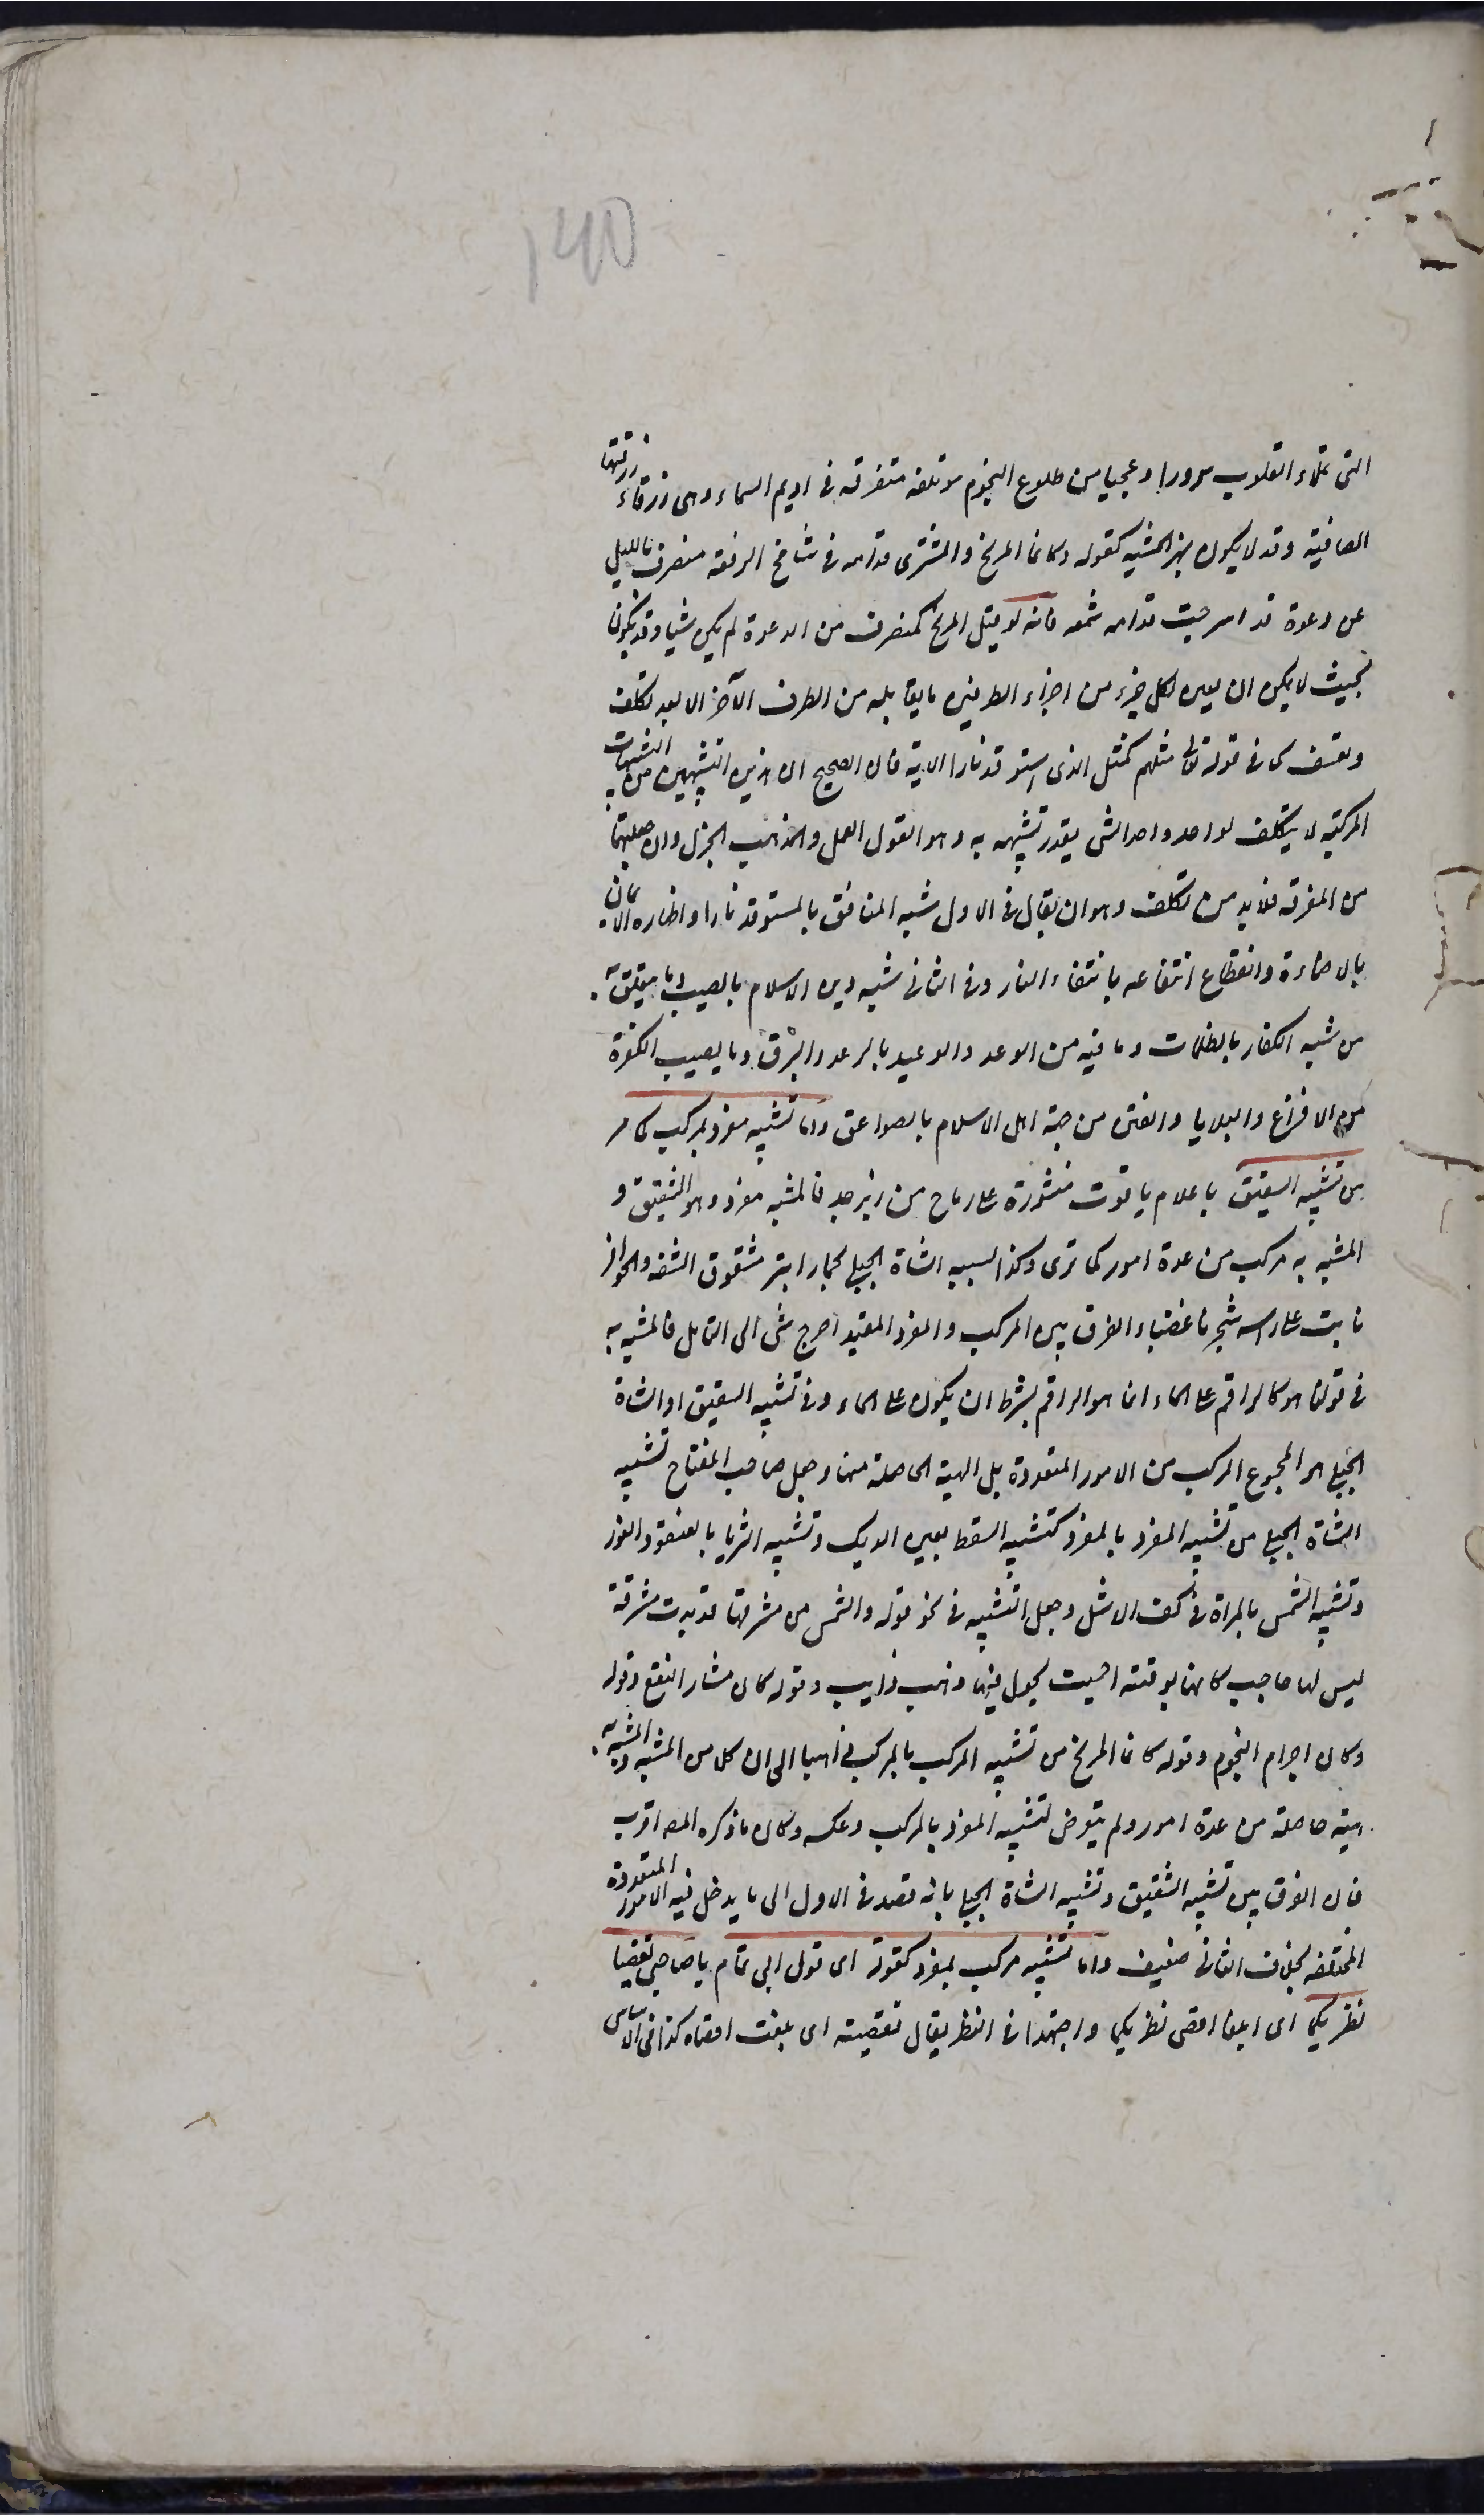 140
التى تملاء القلوب سرورا وعجبا من طلوع النجوم موتلفه متفرقه فى اديم السماء وهى زرقاء زرقتها
الصافيه وقد لا يكون بهذ الحشيه كقوله وكانما المريخ والمشترى قدامه فى شامخ الرفعه منصرف بالليل
عن دعوة قد اسرجت قدامه شمعه فانه لو قيل المريخ كمنصرف من الدعوة لم يكن شيا وقد يكون
بحيث لا يمكن ان يعين لكل جزء من اجزاء الطرفين ما يقابله من الطرف الآخر الا بعد تكلف
وتعسف كما فى قوله تعالى مثلهم كمثل الذى استوقد نارا الاية فان الصحيح ان هذين التشبيهين من التشبيهات
المركبه لا يتكلف لواحد واحد شى يقدر تشبيهه به وهو القول الفحل والمذهب الجزل وان جعلتهما
من المفرقه فلا بد من تكلف وهو ان يقال فى الاول شبه المنافق بالمستوقد نارا واظهاره الايمان
بالاضاءة وانقطاع انتفاعه بانتفاء النار وفى الثانى شبه دين الاسلام بالصيب وما يتعلق به
من شبه الكفار بالظلمات وما فيه من الوعد والوعيد بالرعد والبرق وما يصيب الكفرة
من الافزاع والبلايا والفتن من جهة اهل الاسلام بالصواعق واما تشبيه مفرد بمركب كما مر
من تشبيه الشقيق باعلام ياقوت منشورة على رماح من زبرجد فالمشبه مفرد وهو الشقيق و
المشبه به مركب من عدة امور كما ترى وكذا تشبيه الشاة الجبلى بحمار ابتر مشقوق الشفه والحوافر
نابت على راسه شجرتا غضا والفرق بين المركب والمفرد المقيد احوج شى الى التامل فالمشبه به
فى قولنا هو كالراقم على الماء انما هو الراقم بشرط ان يكون على الماء وفى تشبيه الشقيق او الشاة
الجبلى هو المجموع المركب من الامور المتعددة بل الهيئة الحاصلة منها وجعل صاحب المفتاح تشبيه
الشاة الجبلى من تشبيه المفرد بالمفرد كتشبيه السقط بعين الديك وتشبيه الثريا بالعنقود المنور
وتشبيه الشمس بالمراة فى كف الاشل وجعل التشبيه فى نحو قوله والشمس من مشرقها قد بدت مشرقة
ليس لها حاجب كانها بوتقه احميت يجول فيها ذهب ذايب وقوله كان مثار النقع وقوله
وكان اجرام النجوم وقوله كانما المريخ من تشبيه المركب بالمركب ذاهبا الى ان كلا من المشبه والمشبه به
هيئة حاصلة من عدة امور ولم يتعرض لتشبيه المفرد بالمركب وعكسه وكان ما ذكره المصـ اقرب
فان الفرق بين تشبيه الشقيق وتشبيه الشاة الجبلى بانه قصد فى الاول الى ما يدخل فيه الامور المتعددة
المختلفه بخلاف الثانى ضعيف واما تشبيه مركب بمفرد كقوله اى قول ابى تمام يا صاحبى تقصيا
نظريكما اى ابلغا اقصى نظريكما واجتهدا فى النظر يقال تقصيته اى بلغت اقصاه كذا فى الاساس